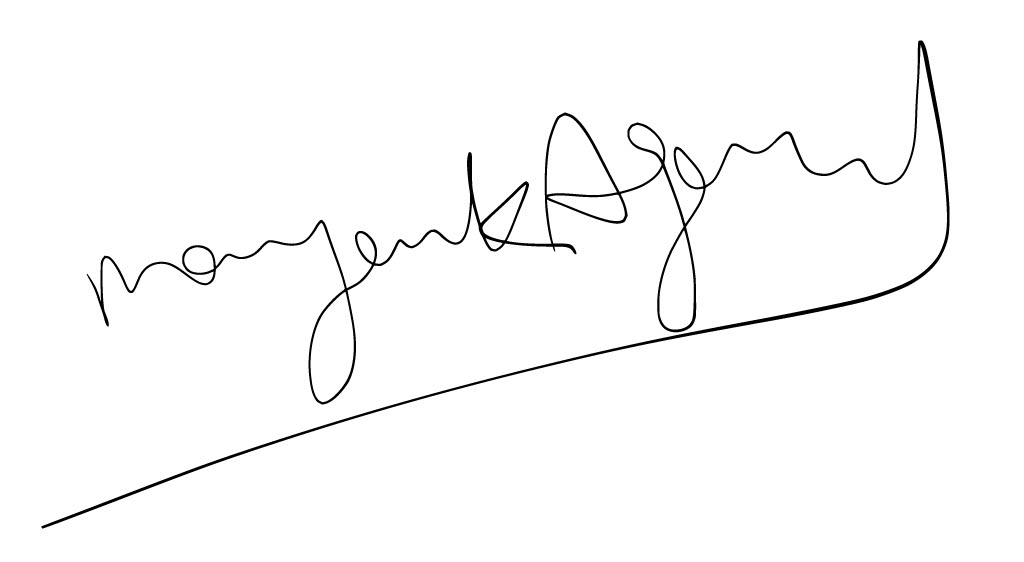 Mayank Agarwal